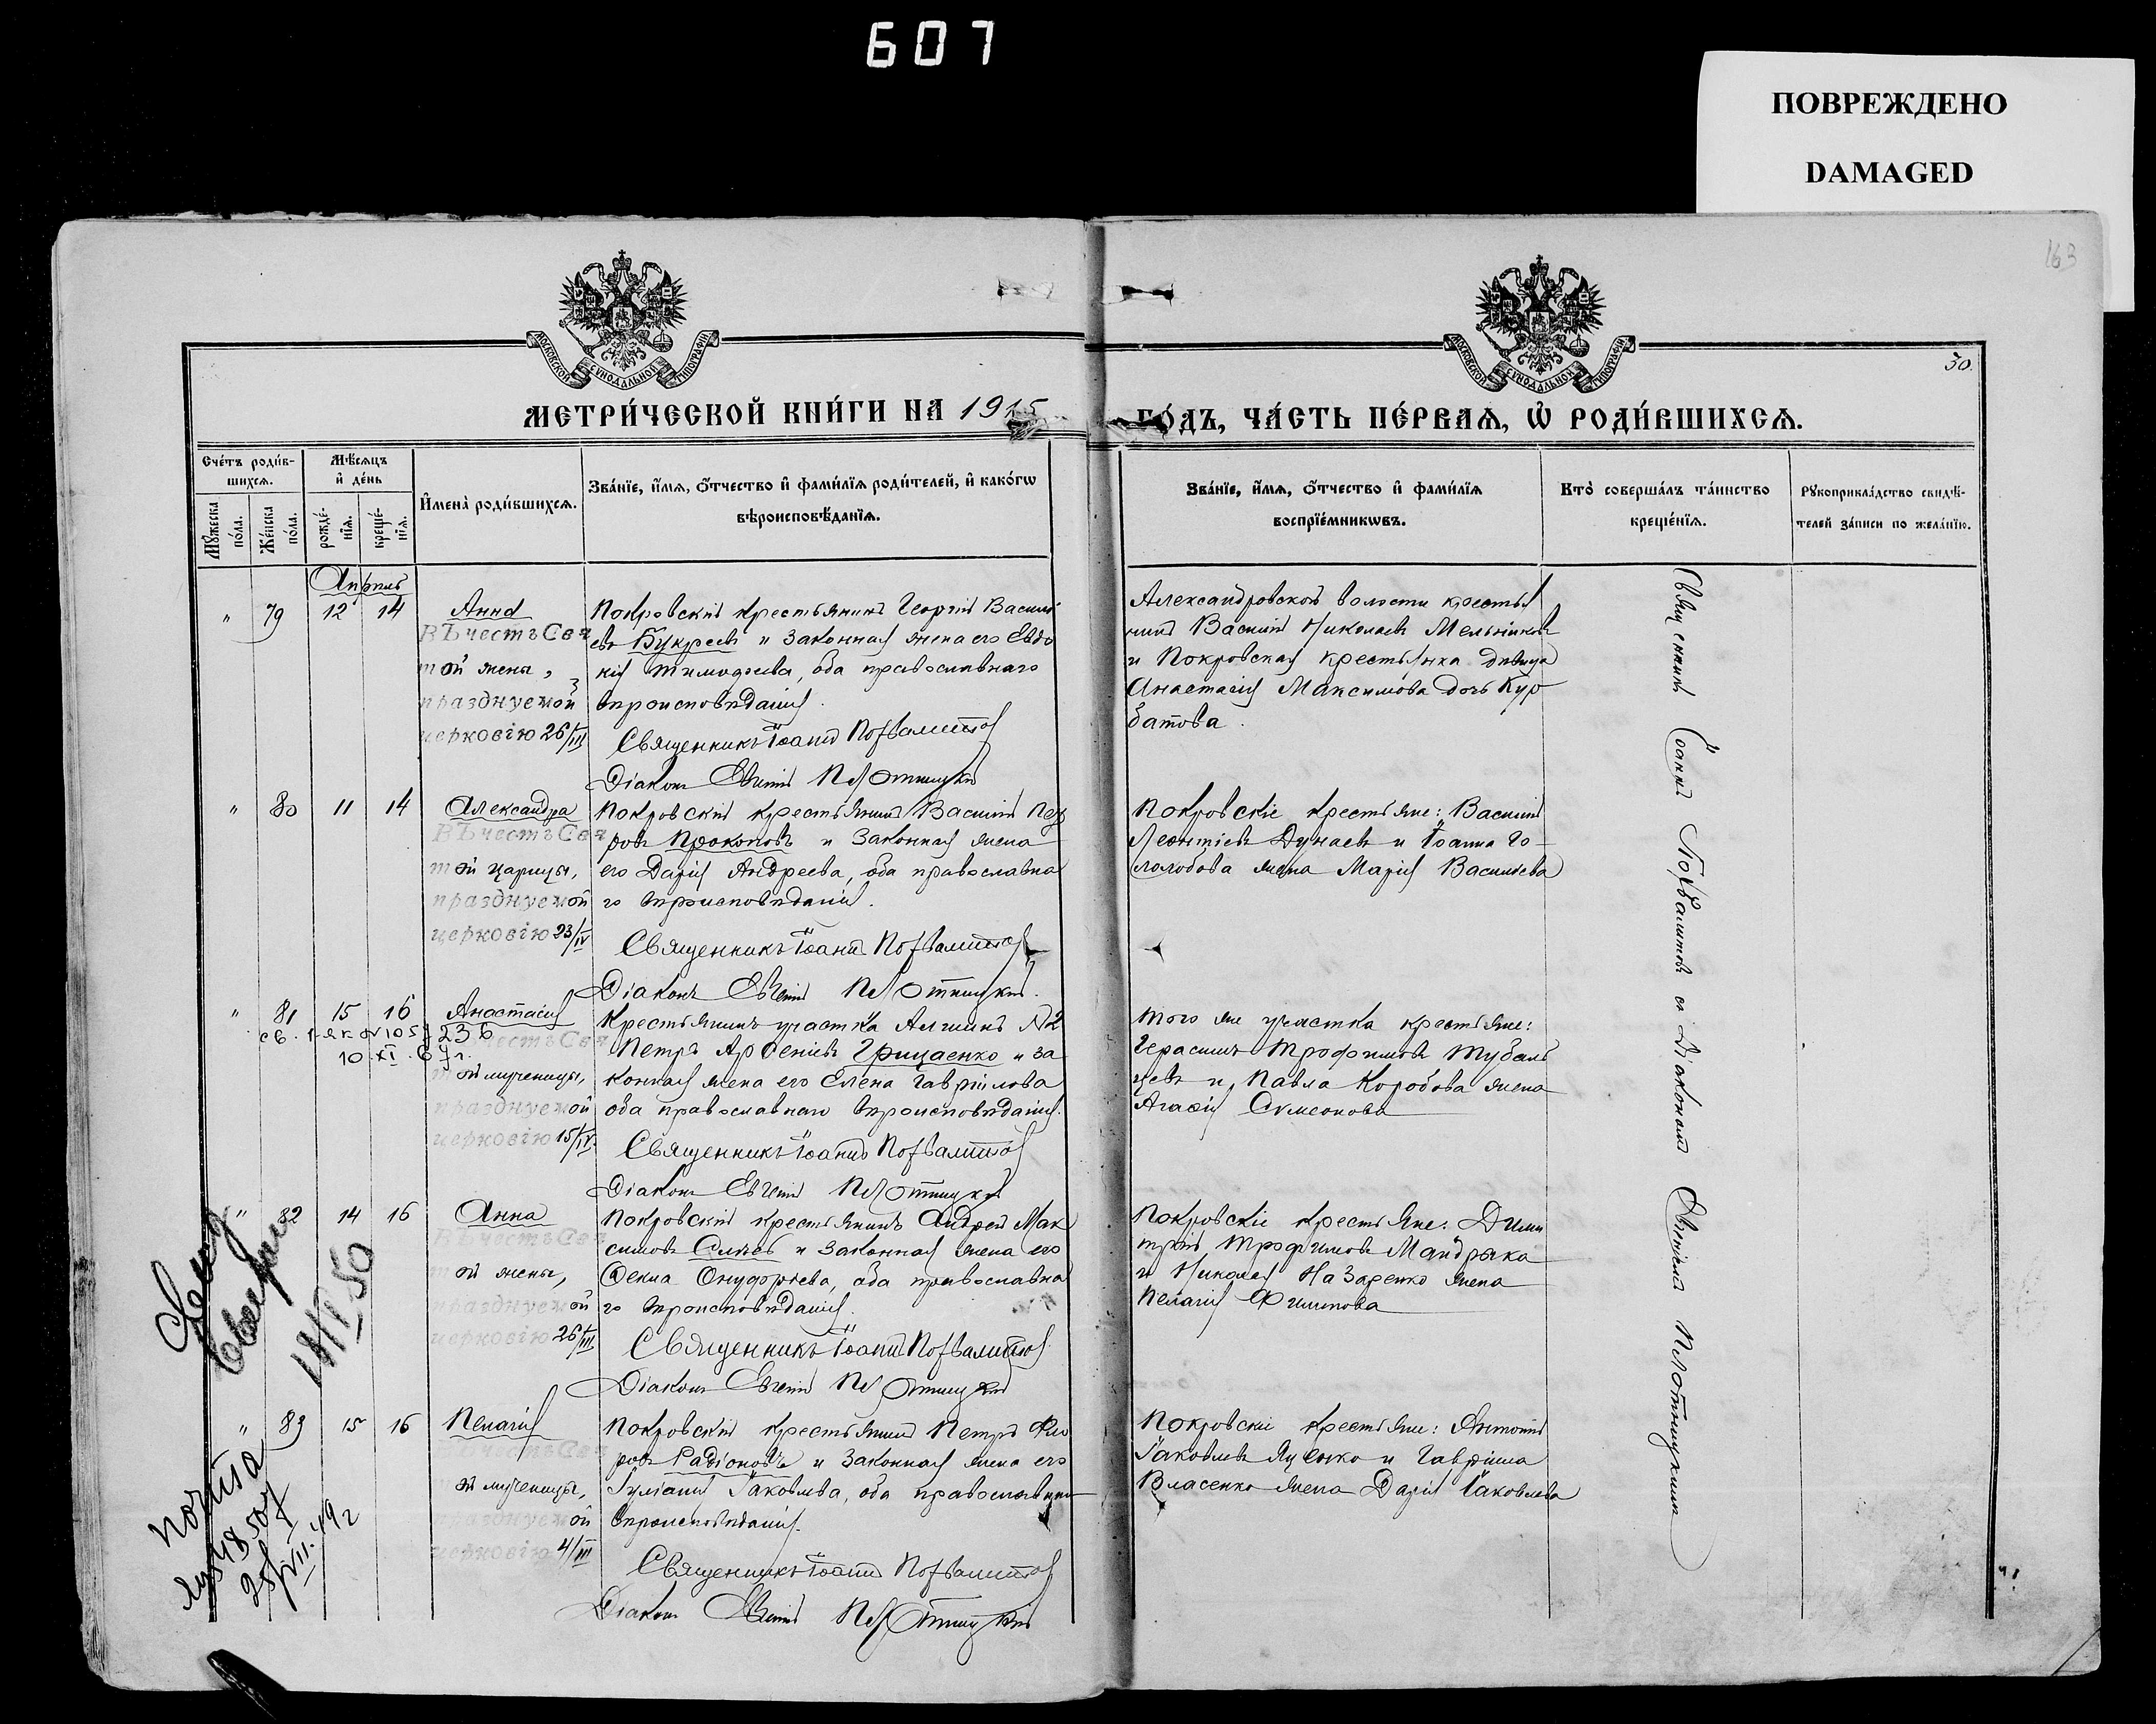 607
ПОВРЕЖДЕНО
DAMAGED
163
МОСКОВСКОЙ СѴНОДАЛЬНОЙ ТИПОГРАФІИ
МОСКОВСКОЙ СѴНОДАЛЬНОЙ ТИПОГРАФІИ
30.
МЕТРИ́ЧЕСКОЙ КНИ́ГИ НА 1915
ГО́ДЪ, ЧА́СТЬ ПЕ́РВАѦ, Ѡ҆ РОДИ́ВШИХСѦ.
Сче́тъ роди́в-
шихсѧ.
Мѣ́сѧцъ
и҆ де́нь
Мꙋ́жеска
по́ла.
Же́нска
по́ла.
рожде́-
нїѧ.
креще́-
нїѧ.
И҆мена̀ роди́вшихсѧ.
Зва́нїе, и҆́мѧ, ѻ҆́тчество и҆ фами́лїѧ роди́телей, и҆ како́гѡ
вѣроисповѣ́данїѧ.
Зва́нїе, и҆́мѧ, ѻ҆́тчество и҆ фами́лїѧ
воспрїе́мникѡвъ.
Кто̀ соверша́лъ та́инство
креще́нїѧ.
Рꙋкоприкла́дство свидѣ́-
телей за́писи по жела́нїю.
Апрѣль
" 79 12 14 Анна
Въ честь Свя
той жены,
празднуемой
церковію 26/III
Покровскій крестьянинъ Георгій Василі
евъ Букреевъ и законная жена его Евдо
кія Тимофеева, оба православнаго
вѣроисповѣданія.
Священникъ Іоаннъ
Діаконъ Евгеній Плотницкій
Александровской волости крестья
нинъ Василій Николаевъ Мельниковъ
и Покровская крестьянка дѣвица
Анастасія Максимова дочь Кур
батова.
" 80 11 14 Александра
Въ честь Свя
той царицы,
празднуемой
церковію 23/IV
Покровскій крестьянинъ Василій
ровъ Прокоповъ и законная жена
его Дарія Андреева, оба православна
го вѣроисповѣданія.
Священникъ Іоаннъ
Діаконъ Евгеній Плотницкій.
Покровскіе крестьяне: Василій
Леонтіевъ Дунаевъ и Іоанна Го-
лолобова жена Марія Васильева
" 81 15 16 Анастасія
10.XI.67г.
честь Свя
ой мученицы,
празднуемой
церковію 15/IV.
Крестьянинъ участка Алгинъ №2
Петръ Арсеніевъ Грицаенко и за
конная жена его Елена Гавріилова
оба православнаго вѣроисповѣданія.
Священникъ Іоаннъ
Діаконъ Евгеній Плотницкій
Того же участка крестьяне:
Герасимъ Трофимовъ Тубаль
цевъ и Павла Коробова жена
Агафія Сѵмеонова
" 82 14 16 Анна
Въ честь Свя
ой жены,
празднуемой
церковію 26/III
Покровскій крестьянинъ Андрей Мак
симовъ и законная жена его
Фекла Онуфріева, оба православна
го вѣроисповѣданія.
Священникъ Іоаннъ
Діаконъ Евгеній Плотницкій
Покровскіе крестьяне: Дими
трій Трофимовъ Мандрыка
и Николая Назаренко жена
Пелагія Филипова
50
" 83 15 16 Пелагія
честь Свя
ой мученицы,
празднуемой
церковію 4/III
Покровскій крестьянинъ Петръ Фло
ровъ Радіоновъ и законная жена его
Іуліанія Іаковлева, оба православнаго
вѣроисповѣданія.
Священникъ Іоаннъ
Діаконъ Евгеній Плотницкій
Покровскіе крестьяне: Антоній
Іаковлевъ Яценко и Гавріила
Власенко жена Дарія Іаковлева
VII.49г
Священникъ Іоаннъ съ діакономъ Евгеніемъ Плотницкимъ